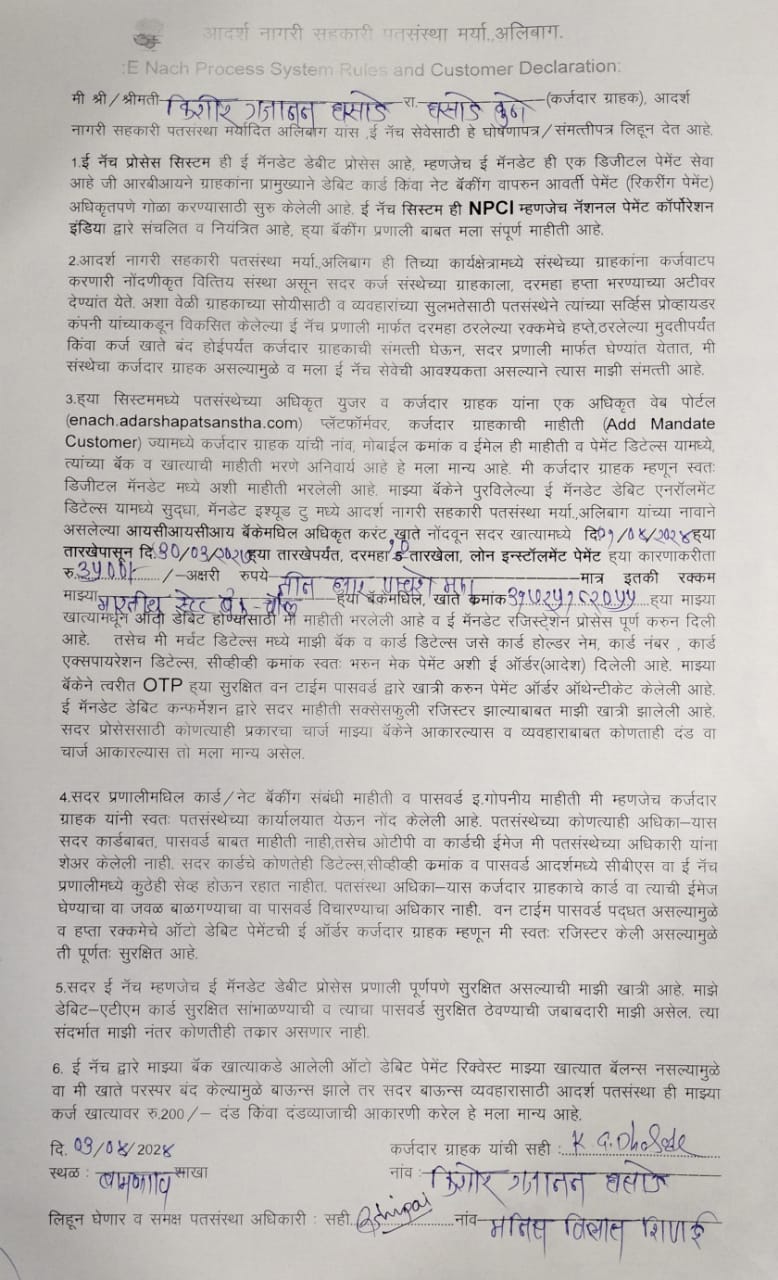 आदर्श नागरी सहकारी पतसंस्था मर्या.,अलिबाग.
:E Nach Process System Rules and Customer Declaration:
मी श्री/श्रीमती किशोर गजानन धसाडे रा. धसाडे कुणे (कर्जदार ग्राहक), आदर्श
नागरी सहकारी पतसंस्था मर्यादित अलिबाग यांस ,ई नॅच सेवेसाठी हे घोषणापत्र/संमत्तीपत्र लिहून देत आहे.
1.ई नॅच प्रोसेस सिस्टम ही ई मॅनडेट डेबीट प्रोसेस आहे, म्हणजेच ई मॅनडेट ही एक डिजीटल पेमेंट सेवा
आहे जी आरबीआयने ग्राहकांना प्रामुख्याने डेबिट कार्ड किंवा नेट बॅकींग वापरुन आवर्ती पेमेंट (रिकरींग पेमेंट)
अधिकृतपणे गोळा करण्यासाठी सुरु केलेली आहे. ई नॅच सिस्टम ही NPCI म्हणजेच नॅशनल पेमेंट कॉर्पोरेशन
इंडिया द्वारे संचलित व नियंत्रित आहे, ह्या बॅकींग प्रणाली बाबत मला संपूर्ण माहीती आहे.
2.आदर्श नागरी सहकारी पतसंस्था मर्या.,अलिबाग ही तिच्या कार्यक्षेत्रामध्ये संस्थेच्या ग्राहकांना कर्जवाटप
करणारी नोंदणीकृत वित्तिय संस्था असून सदर कर्ज संस्थेच्या ग्राहकाला, दरमहा हप्ता भरण्याच्या अटीवर
देण्यांत येते. अशा वेळी ग्राहकाच्या सोयीसाठी व व्यवहारांच्या सुलभतेसाठी पतसंस्थेने त्यांच्या सर्व्हिस प्रोव्हायडर
कंपनी यांच्याकडून विकसित केलेल्या ई नॅच प्रणाली मार्फत दरमहा ठरलेल्या रक्कमेचे हप्ते,ठरलेल्या मुदतीपर्यंत
किंवा कर्ज खाते बंद होईपर्यंत कर्जदार ग्राहकाची संमत्ती घेऊन, सदर प्रणाली मार्फत घेण्यांत येतात, मी
संस्थेचा कर्जदार ग्राहक असल्यामुळे व मला ई नॅच सेवेची आवश्यकता असल्याने त्यास माझी संमत्ती आहे.
3.ह्या सिस्टममध्ये पतसंस्थेच्या अधिकृत युजर व कर्जदार ग्राहक यांना एक अधिकृत वेब पोर्टल
(enach.adarshapatsanstha.com) प्लॅटफॉर्मवर, कर्जदार ग्राहकाची माहीती (Add Mandate
Customer) ज्यामध्ये कर्जदार ग्राहक यांची नांव, मोबाईल क्रमांक व ईमेल ही माहीती व पेमेंट डिटेल्स यामध्ये,
त्यांच्या बॅक व खात्याची माहीती भरणे अनिवार्य आहे हे मला मान्य आहे. मी कर्जदार ग्राहक म्हणून स्वतः
डिजीटल मॅनडेट मध्ये अशी माहीती भरलेली आहे. माझ्या बॅकेने पुरविलेल्या ई मॅनडेट डेबिट एनरॉलमेंट
डिटेल्स यामध्ये सुद्धा, मॅनडेट इश्यूड टु मध्ये आदर्श नागरी सहकारी पतसंस्था मर्या.,अलिबाग यांच्या नावाने
असलेल्या आयसीआयसीआय बॅकेमधिल अधिकृत करंट खाते नोंदवून सदर खात्यामध्ये दि.09/04/2024 ह्या
तारखेपासून दि.30/03/2027 ह्या तारखेपर्यंत, दरमहा 10 तारखेला, लोन इन्स्टॉलमेंट पेमेंट ह्या कारणाकरीता
रु.3500/- /-अक्षरी रुपये तीन हजार पाचशे मात्र मात्र इतकी रक्कम
माझ्या भारतीय स्टेट बँक-चौल ह्या बॅकेमधिल, खाते क्रमांक ह्या माझ्या
खात्यामधून ऑटो डेबिट होण्यासाठी मी माहीती भरलेली आहे व ई मॅनडेट रजिस्ट्रेशन प्रोसेस पूर्ण करुन दिली
आहे. तसेच मी मर्चंट डिटेल्स मध्ये माझी बॅक व कार्ड डिटेल्स जसे कार्ड होल्डर नेम, कार्ड नंबर , कार्ड
एक्सपायरेशन डिटेल्स, सीव्हीव्ही क्रमांक स्वतः भरुन मेक पेमेंट अशी ई ऑर्डर(आदेश) दिलेली आहे. माझ्या
बॅकेने त्वरीत OTP ह्या सुरक्षित वन टाईम पासवर्ड द्वारे खात्री करुन पेमेंट ऑर्डर ऑथेन्टीकेट केलेली आहे.
ई मॅनडेट डेबिट कन्फर्मेशन द्वारे सदर माहीती सक्सेसफुली रजिस्टर झाल्याबाबत माझी खात्री झालेली आहे.
सदर प्रोसेससाठी कोणत्याही प्रकारचा चार्ज माझ्या बॅकेने आकारल्यास व व्यवहाराबाबत कोणताही दंड वा
चार्ज आकारल्यास तो मला मान्य असेल.
4.सदर प्रणालीमधिल कार्ड/नेट बॅकींग संबंधी माहीती व पासवर्ड इ.गोपनीय माहीती मी म्हणजेच कर्जदार
ग्राहक यांनी स्वतः पतसंस्थेच्या कार्यालयात येऊन नोंद केलेली आहे. पतसंस्थेच्या कोणत्याही अधिका–यास
सदर कार्डबाबत, पासवर्ड बाबत माहीती नाही,तसेच ओटीपी वा कार्डची ईमेज मी पतसंस्थेच्या अधिकारी यांना
शेअर केलेली नाही. सदर कार्डचे कोणतेही डिटेल्स,सीव्हीव्ही क्रमांक व पासवर्ड आदर्शमध्ये सीबीएस वा ई नॅच
प्रणालीमध्ये कुठेही सेव्ह होऊन रहात नाहीत. पतसंस्था अधिका–यास कर्जदार ग्राहकाचे कार्ड वा त्याची ईमेज
घेण्याचा वा जवळ बाळगण्याचा वा पासवर्ड विचारण्याचा अधिकार नाही. वन टाईम पासवर्ड पद्धत असल्यामुळे
व हप्ता रक्कमेचे ऑटो डेबिट पेमेंटची ई ऑर्डर कर्जदार ग्राहक म्हणून मी स्वतः रजिस्टर केली असल्यामुळे
ती पूर्णतः सुरक्षित आहे.
5.सदर ई नॅच म्हणजेच ई मॅनडेट डेबीट प्रोसेस प्रणाली पूर्णपणे सुरक्षित असल्याची माझी खात्री आहे. माझे
डेबिट–एटीएम कार्ड सुरक्षित सांभाळण्याची व त्याचा पासवर्ड सुरक्षित ठेवण्याची जबाबदारी माझी असेल. त्या
संदर्भात माझी नंतर कोणतीही तक्रार असणार नाही.
6. ई नॅच द्वारे माझ्या बॅक खात्याकडे आलेली ऑटो डेबिट पेमेंट रिक्वेस्ट माझ्या खात्यात बॅलन्स नसल्यामुळे
वा मी खाते परस्पर बंद केल्यामुळे बाऊन्स झाले तर सदर बाऊन्स व्यवहारासाठी आदर्श पतसंस्था ही माझ्या
कर्ज खात्यावर रु.200/– दंड किंवा दंडव्याजाची आकारणी करेल हे मला मान्य आहे.
दि. 03/04/2024 कर्जदार ग्राहक यांची सही : K G Dhasade
स्थळ : बामणगाव शाखा नांव : किशोर गजानन धसाडे
लिहून घेणार व समक्ष पतसंस्था अधिकारी : सही. नांव मनिष विलास शिणई